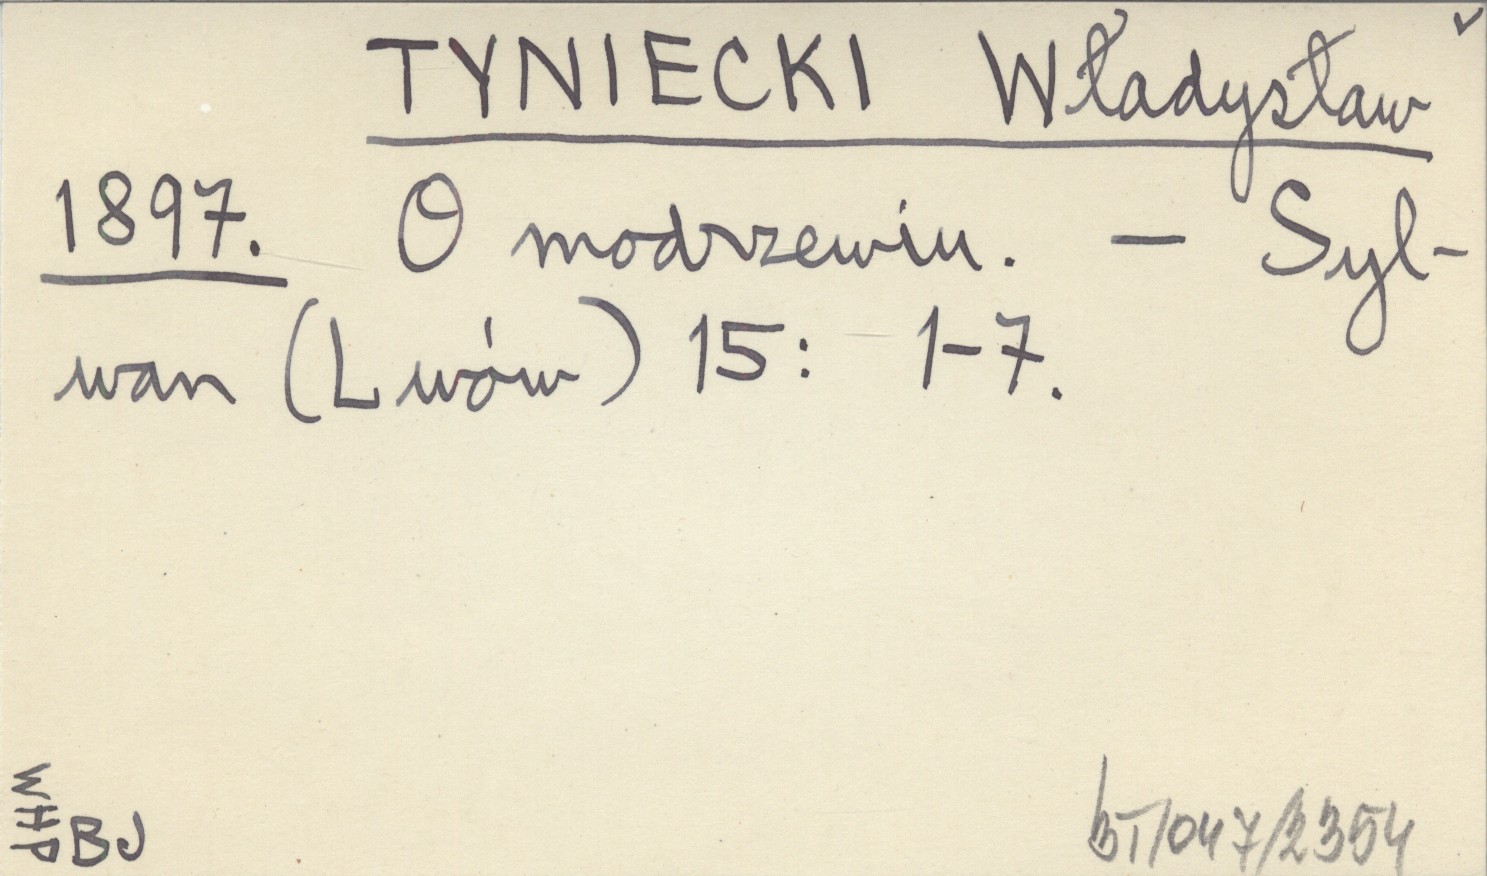 TYNIECKI Władysław
1897. O modrzewiu. — Syl-
wan (Lwów) 15: 1-7.
WHP
BJ
bT/047/2354